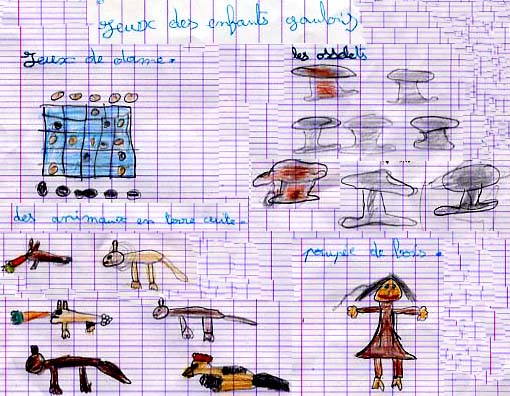 Jeux des enfants gaulois
Jeux de dame.
les osselets
des animaux en terre cuite.
poupée de bois.